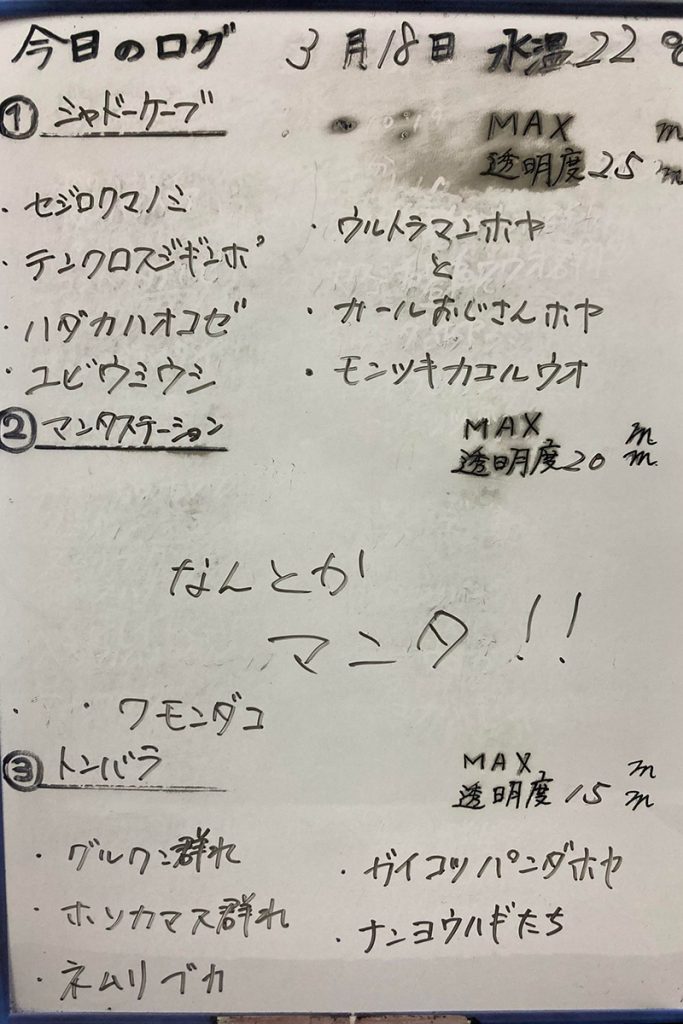 今日のログ 3月18日 水温22℃
① シャドーケーブ MAX m
透明度25m
・セジロクマノミ
・テンクロスジギンポ
・ハダカハオコゼ
・ユビウミウシ
・ウルトラマンホヤ
と
・カールおじさんホヤ
・モンツキカエルウオ
② マンタステーション MAX m
透明度20m
なんとか
マンタ!!
・ ・ワモンダコ
③ トンバラ MAX m
透明度15m
・グルクン群れ
・ホソカマス群れ
・ネムリブカ
・ガイコツパンダホヤ
・ナンヨウハギたち